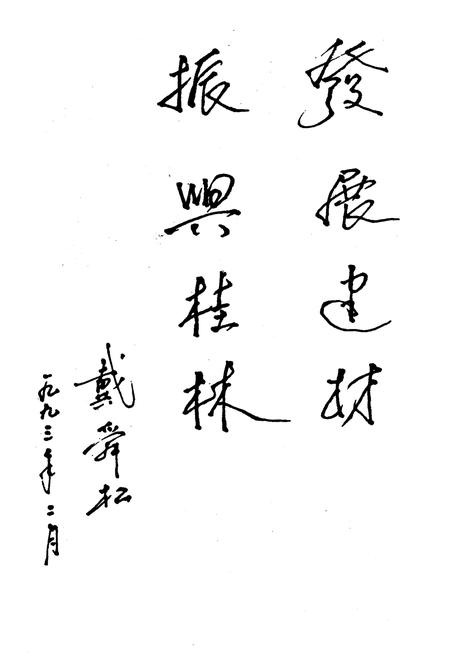 發展建材
振興桂林
戴舜松
一九九三年二月